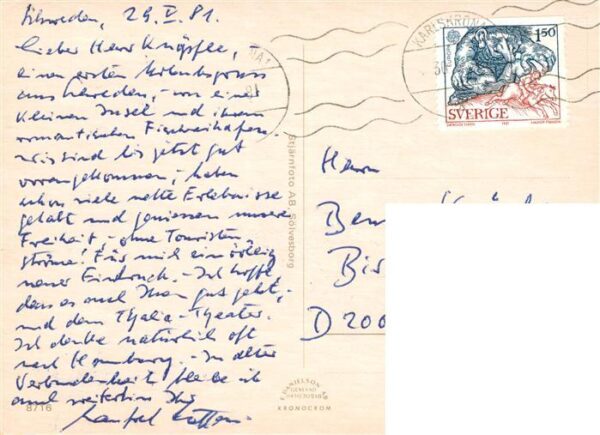 Schweden, 29.V.81.
Lieber Herr Knöpfle,
einen ersten Urlaubsgruss
aus Schweden, - von einer
kleinen Insel und ihrem
romantischen Fischereihafen. -
wir sind bis jetzt gut
vorangekommen, haben
schon viele nette Erlebnisse
gehabt und geniessen unsere
Freiheit, - ohne Touristen-
ströme! Für mich ein völlig
neuer Eindruck. - Ich hoffe
dass es auch Ihnen gut geht, -
und dem Thalia-Theater.
Ich denke natürlich oft
nach Hamburg. - In alter
Verbundenheit bleibe ich
auch weiterhin Ihr
8/16
Stjärnfoto AB, Sölvesborg
KARLSKRONA
EUROPA
1.50
SVERIGE
1981
Herrn
Bis
D 200
F. DANIELSON AB
KRONOCROM